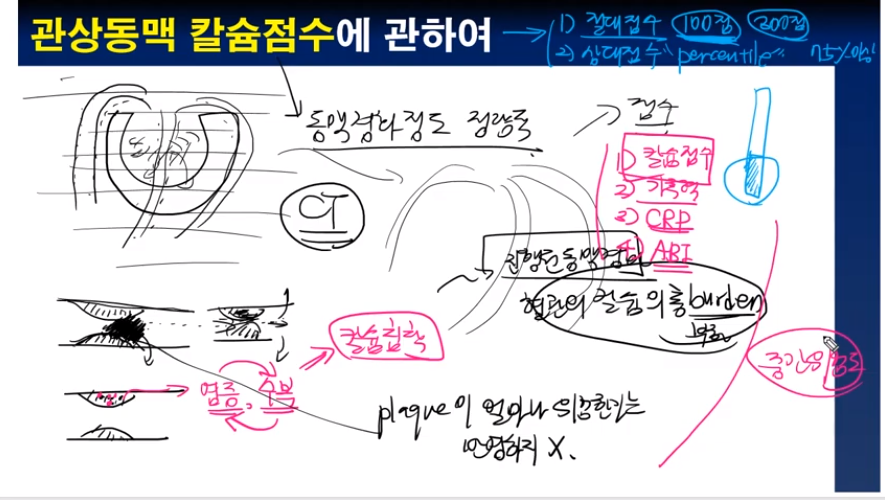 관상동맥 칼슘점수에 관하여
1) 절대점수 100점 300점
2) 상대점수 "percentile" 75%이상
동맥경화정도 정량폭
점수
1) 칼슘점수
2) 가족력
3) CRP
4) ABI
CT
진행된 동맥경화
혈관의 칼슘의 총 burden
칼슘침착
염증, 수복
중간위험도
plaque이 얼마나 위험한가는
반영하지 X.